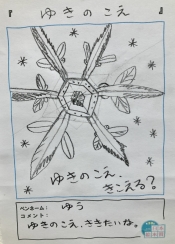 『ゆきのこえ』
ゆきのこえ、
きこえる?
ペンネーム: ゆう
コメント:
ゆきのこえ、ききたいな。